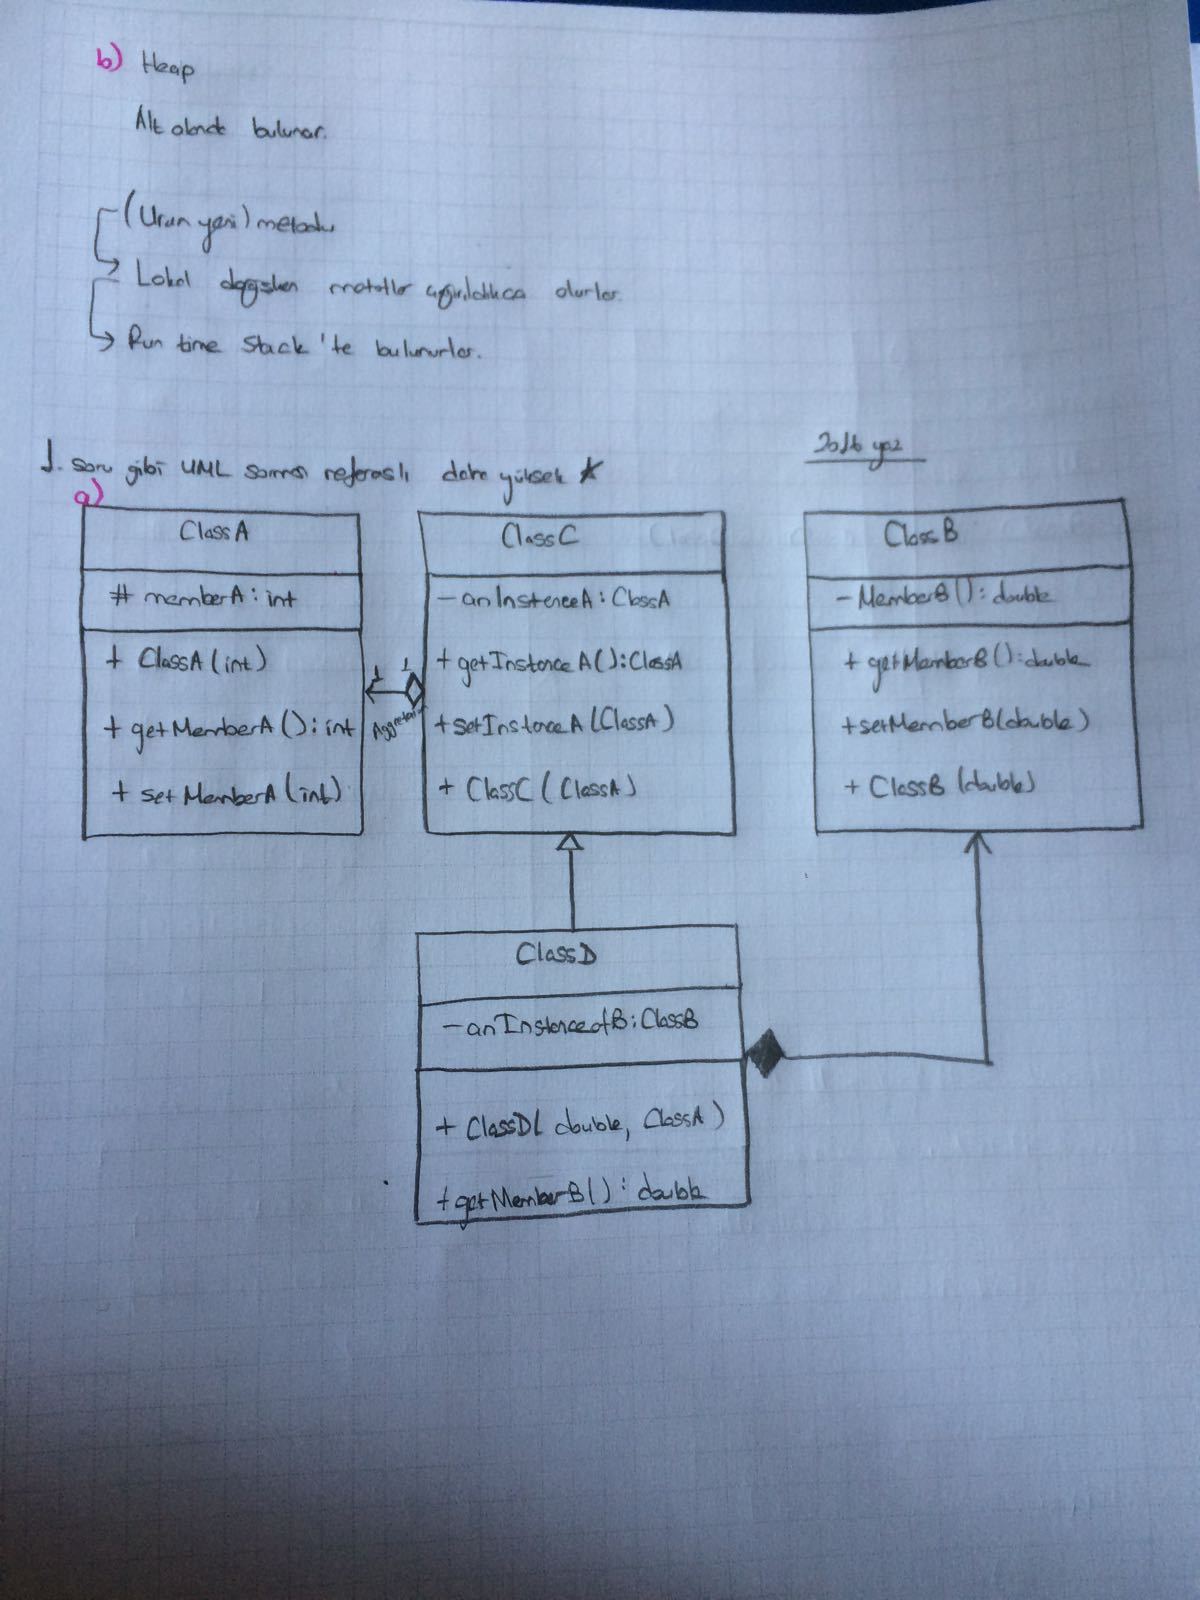 b) Heap
Alt alanda bulunur.
(Urun yeni) metodu
Lokal degisken metotlar çagırıldıkca olurlar.
Run time Stack'te bulunurlar.
1. soru gibi UML sorması daha yüksek ★
2016 yaz
a)
ClassA
# memberA: int
+ ClassA (int)
+ getMemberA (): int
+ setMemberA (int)
1 1
Aggretai
ClassC
- anInstanceA: ClassA
+ getInstanceA(): ClassA
+ setInstanceA (ClassA)
+ ClassC ( ClassA )
ClassB
- MemberB (): double
+ getMemberB (): double
+ setMemberB (double)
+ ClassB (double)
ClassD
- anInstanceofB: ClassB
+ ClassD( double, ClassA )
+ getMemberB() : double